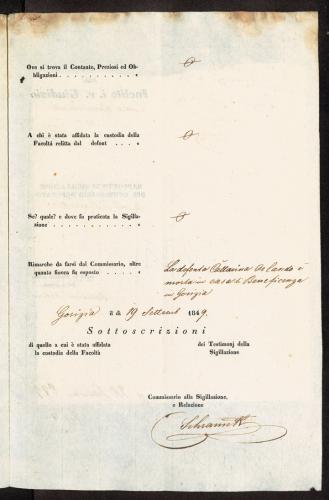 Ove si trova il Contante, Preziosi ed Ob-
bligazioni . . . . . . . . . . .
A chi è stata affidata la custodia della
Facoltà relitta dal defont . . . .
Se? quale? e dove fu praticata la Sigilla-
zione . . . . . . . . . . . . .
Rimarche da farsi dal Commissario, oltre
quanto finora fu esposto . . . . .
La defonta Catterina Orlando è
morta in casa di Beneficenza
in Gorizia
Gorizia li 19 Settemb 1849.
Sottoscrizioni
di quello a cui è stata affidata
la custodia della Facoltà
dei Testimonj della
Sigillazione
Commissario alla Sigillazione,
e Relazione